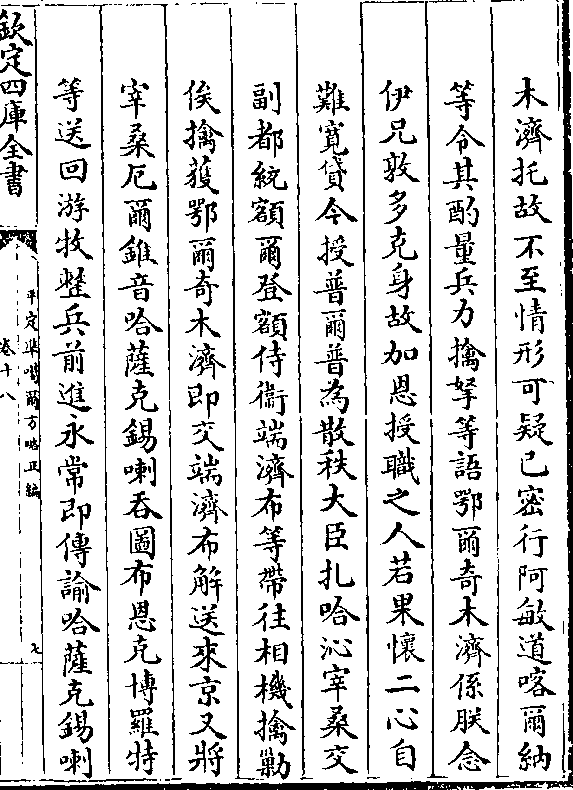 木濟托故不至情形可疑已密行阿敏道喀爾納
等令其酌量兵力擒拏等語鄂爾奇木濟係朕念
伊兄敦多克身故加恩授職之人若果懷二心自
難寛貸今授普爾普為散秩大臣扎哈沁宰桑交
副都統額爾登額侍衞端濟布等帶往相機擒勦
俟擒獲鄂爾奇木濟即交端濟布解送來京又將
宰桑厄爾錐音哈薩克錫喇呑圖布恩克博羅特
等送回游牧整兵前進永常即傳諭哈薩克錫喇
欽定四庫全書
平定準噶爾方略正編
卷十八
七